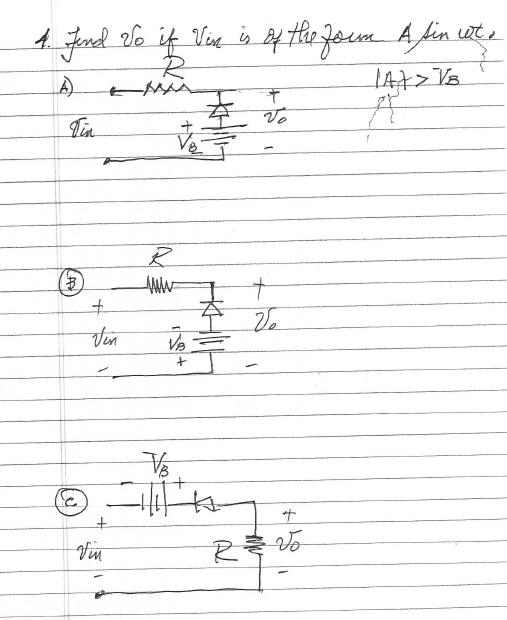 4. Find Vo if Vin is of the form A sin wt.
|A| > VB
A)
R
+
Vin
+
VB
Vo
-
B
R
+
+
Vin
-
VB
Vo
+
-
-
C
VB
-
+
+
+
Vin
R
Vo
-
-